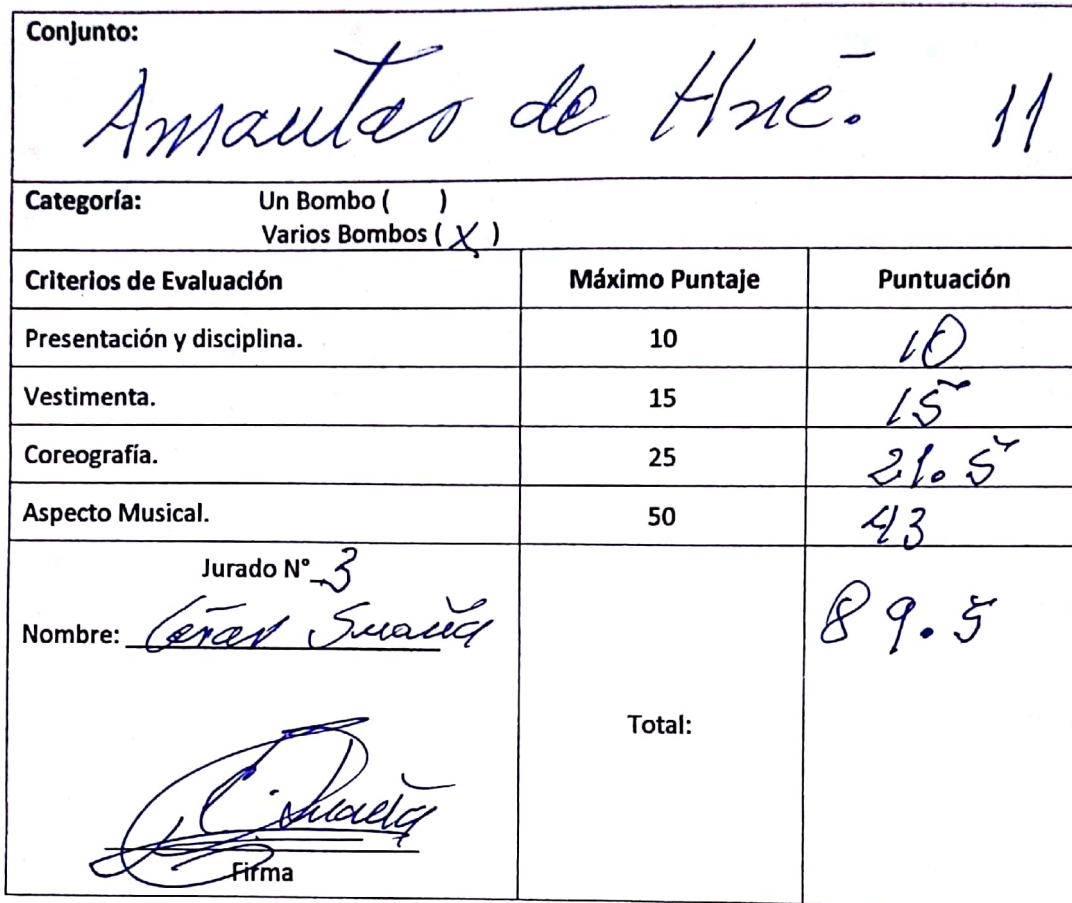 Conjunto:
Amautas de Hné. 11
Categoría: Un Bombo ( )
Varios Bombos ( X )
Criterios de Evaluación Máximo Puntaje Puntuación
Presentación y disciplina. 10 10
Vestimenta. 15 15
Coreografía. 25 21.5
Aspecto Musical. 50 43
Jurado N° 3
Nombre: César Suaña 89.5
Total:
Firma